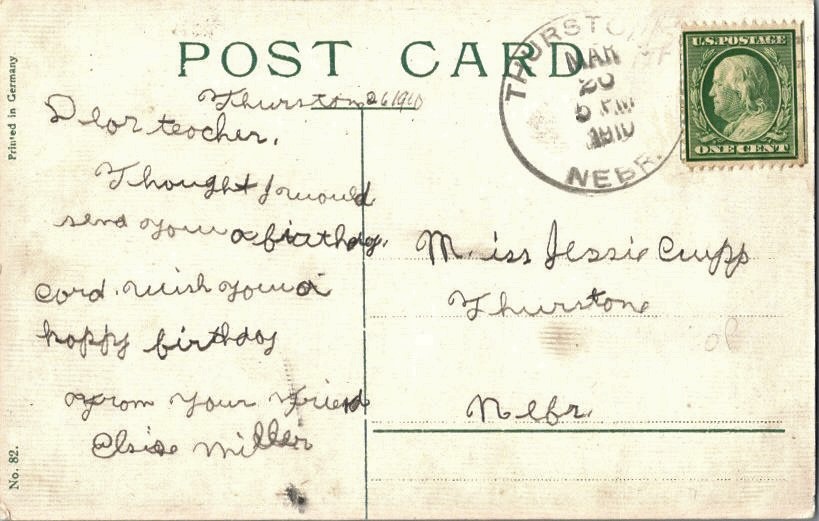 POST CARD
Printed in Germany
No. 82.
THURSTON
MAR
26
5 PM
1910
NEBR.
U.S. POSTAGE
ONE CENT
Thurston 26 1910
Dear teacher,
Thought I would
send you a birthday.
card. wish you a
happy birthday
From your Friend
Elsie Miller
Miss Jessie Cupp
Thurstone
Nebr.